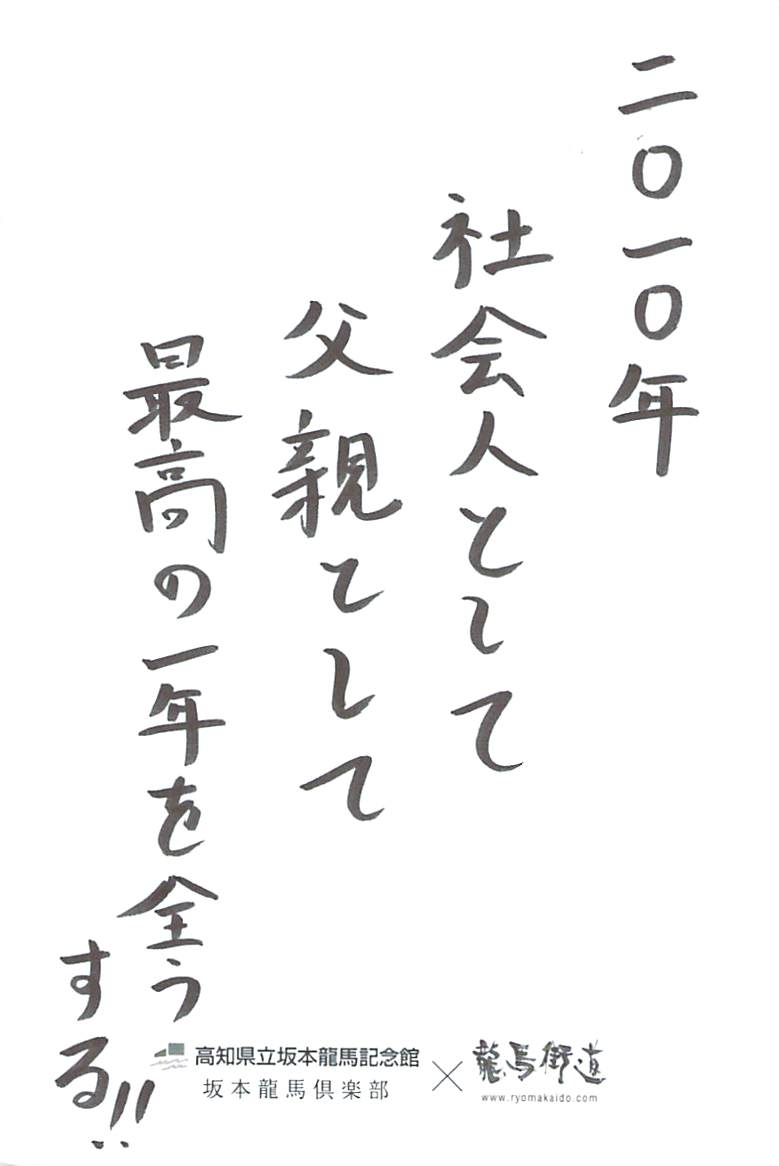 二〇一〇年
社会人として
父親として
最高の一年を全う
する!!
高知県立坂本龍馬記念館
坂本龍馬倶楽部
×
龍馬街道
www.ryomakaido.com